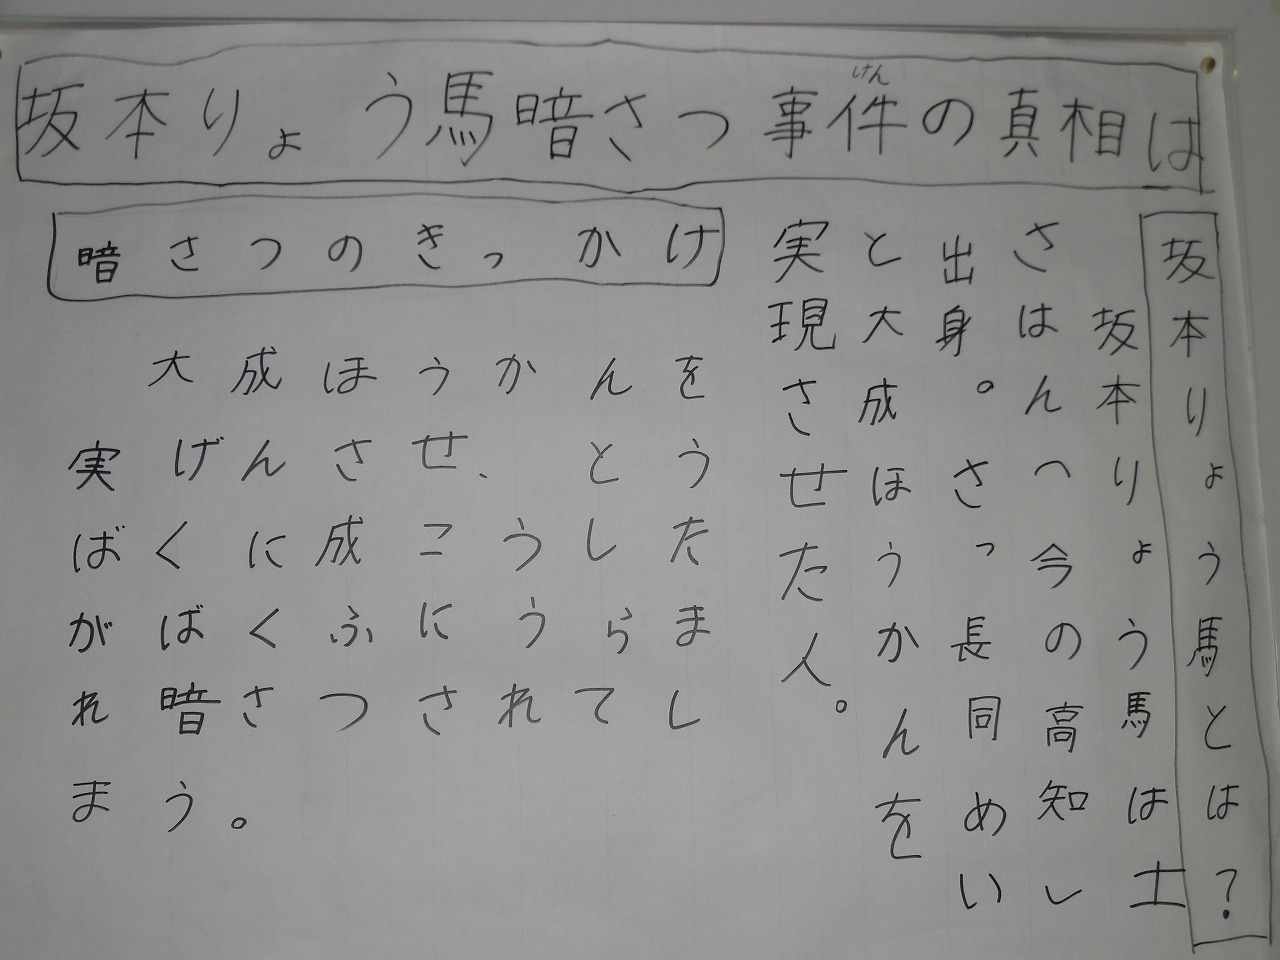 坂本りょう馬暗さつ事件の真相は
けん
坂本りょう馬とは?
坂本りょう馬は士
さはんつ今の高知し
出身。さっ長同めい
と大成ほうかんを
実現させた人。
暗さつのきっかけ
大成ほうかんを
実げんさせ、とう
ばくに成こうした
がばくふにうらま
れ暗さつされてし
まう。